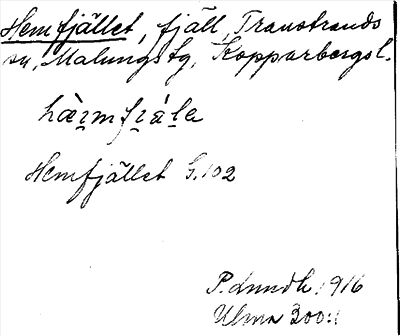 Hemfjället, fjäll, Transtrands
sn, Malungs tg, Kopparbergs l.
Hemfjället G. 102
P. Lundh 1916
Ulma 200:1